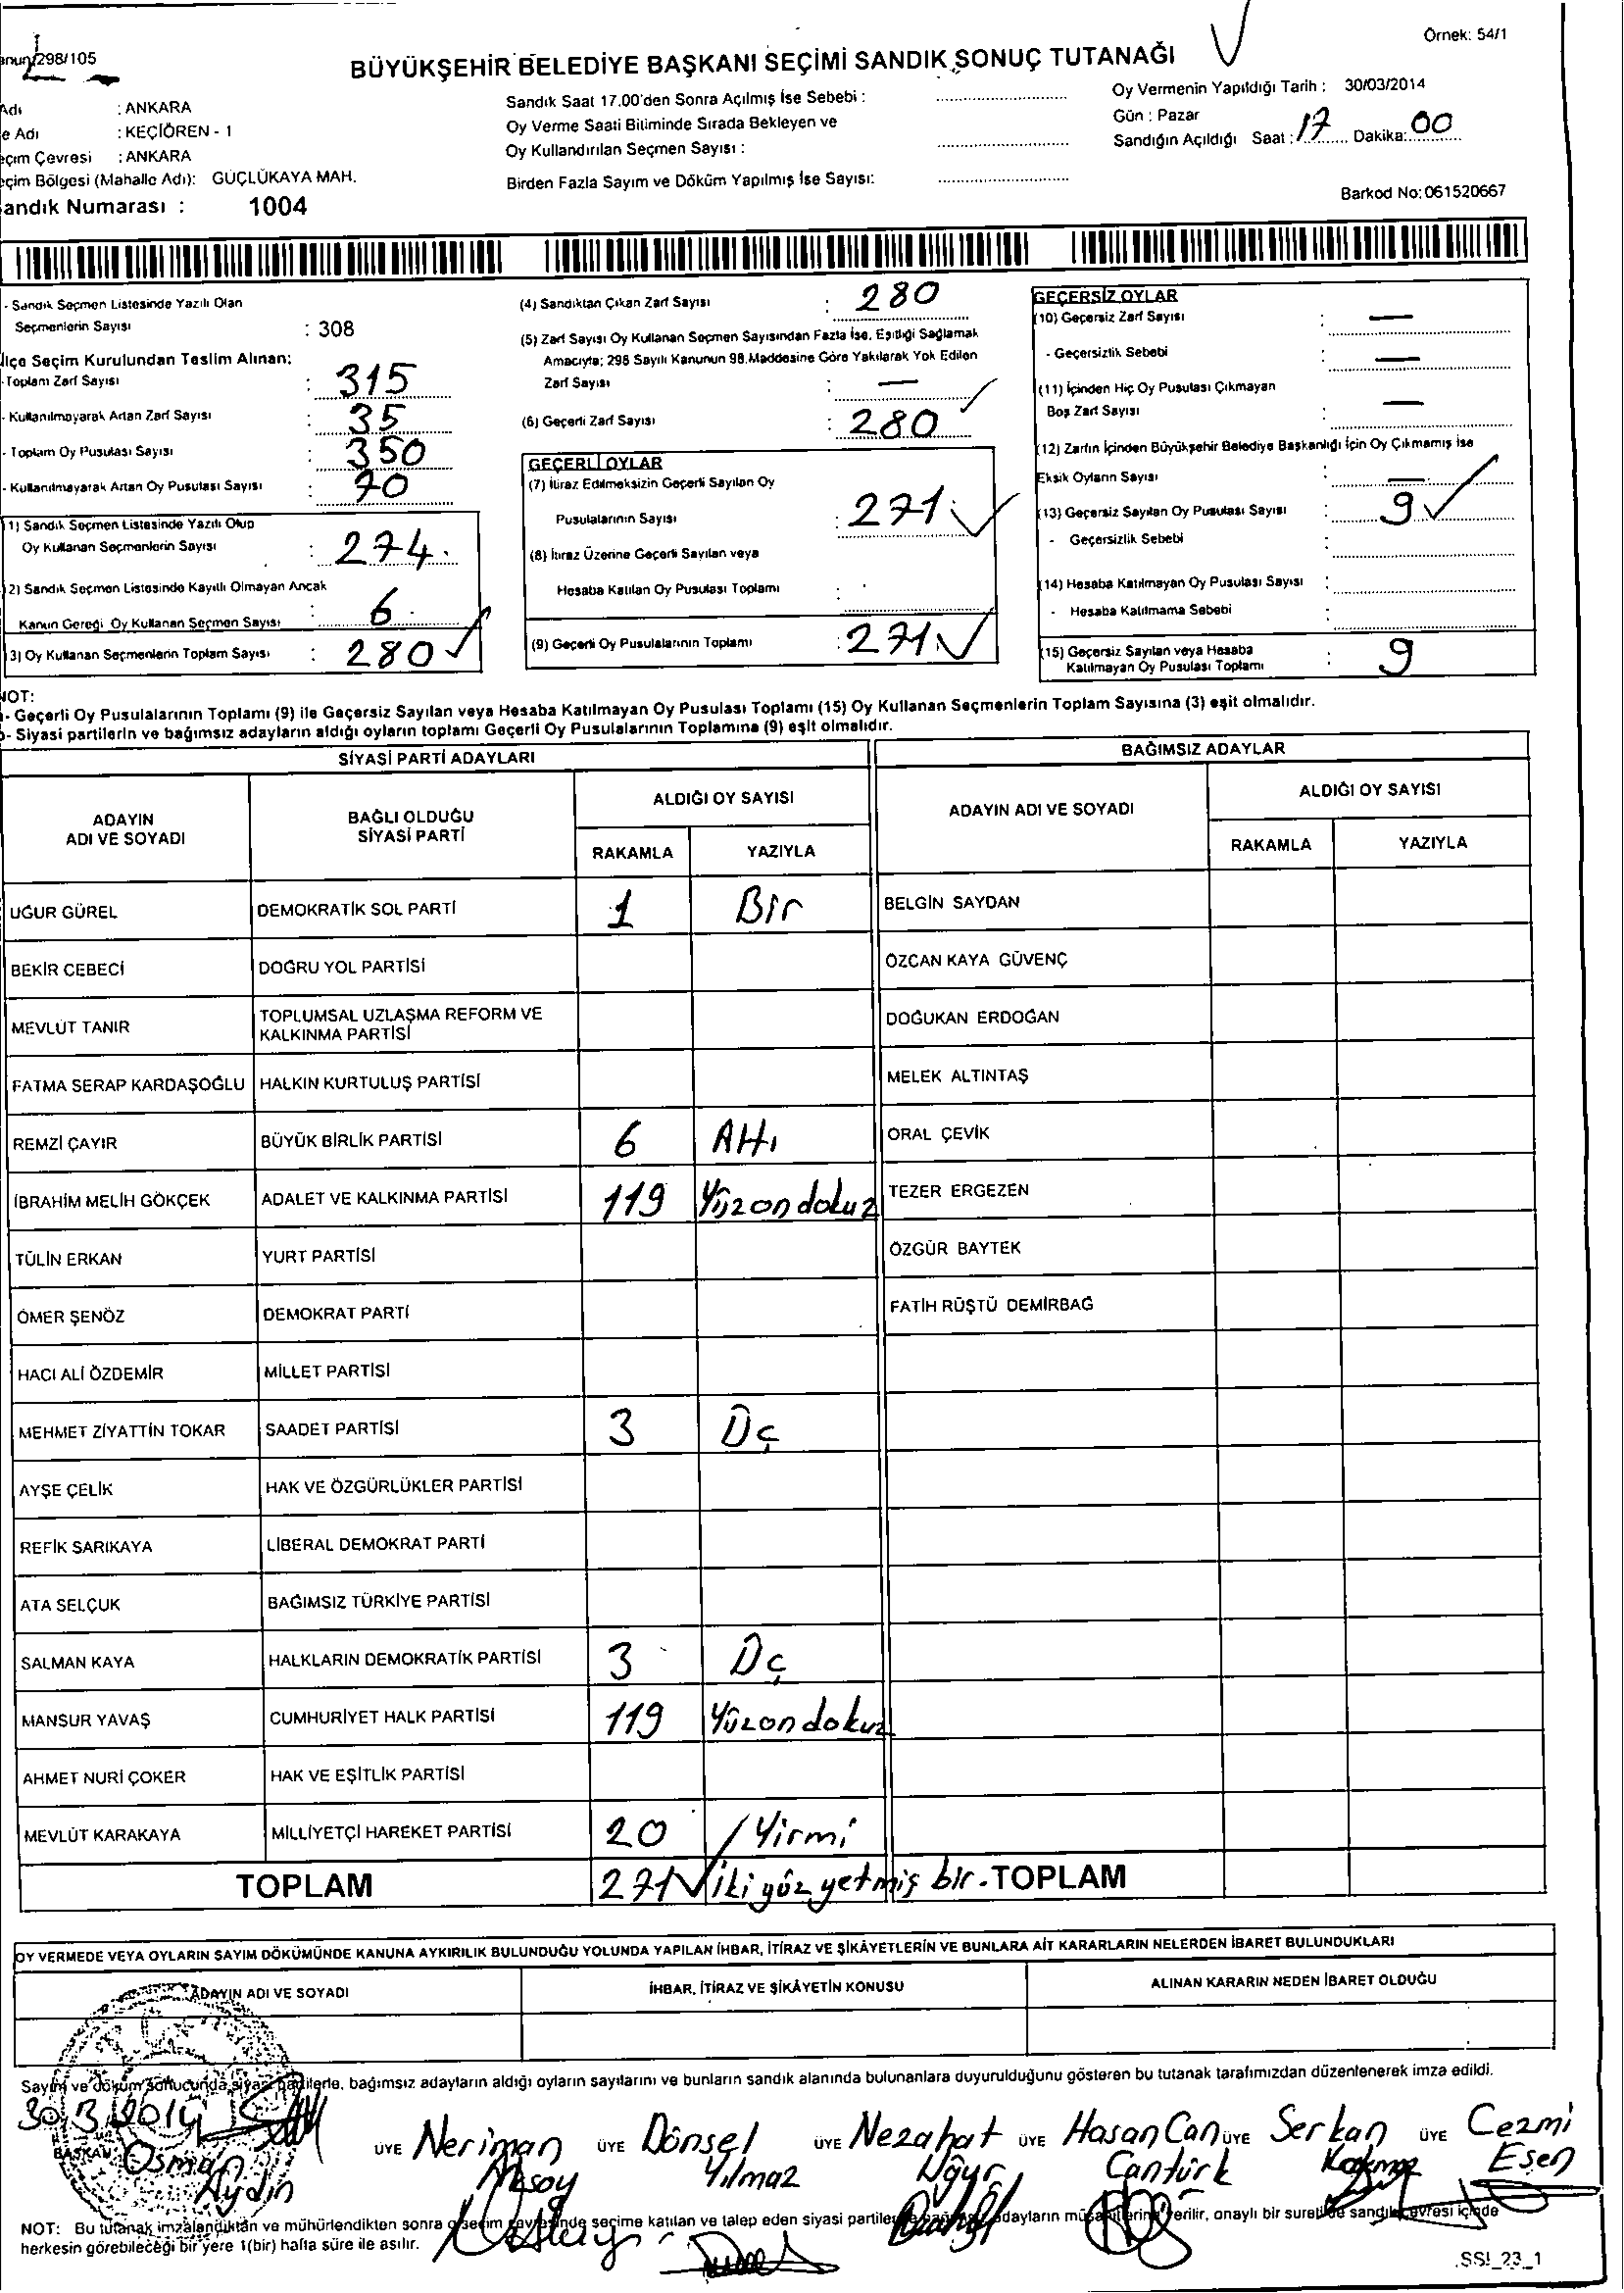 298/105
Örnek: 54/1
BÜYÜKŞEHİR BELEDİYE BAŞKANI SEÇİMİ SANDIK SONUÇ TUTANAĞI
Adı : ANKARA
e Adı : KEÇİÖREN - 1
eçim Çevresi : ANKARA
eçim Bölgesi (Mahalle Adı): GÜÇLÜKAYA MAH.
andık Numarası : 1004
Sandık Saat 17.00'den Sonra Açılmış İse Sebebi :
Oy Verme Saati Bitiminde Sırada Bekleyen ve
Oy Kullandırılan Seçmen Sayısı :
Birden Fazla Sayım ve Döküm Yapılmış İse Sayısı:
Oy Vermenin Yapıldığı Tarih : 30/03/2014
Gün : Pazar
Sandığın Açıldığı Saat : 17 Dakika: 00
Barkod No: 061520667
- Sandık Seçmen Listesinde Yazılı Olan
Seçmenlerin Sayısı : 308
İlçe Seçim Kurulundan Teslim Alınan:
- Toplam Zarf Sayısı : 315
- Kullanılmayarak Artan Zarf Sayısı : 35
- Toplam Oy Pusulası Sayısı : 350
- Kullanılmayarak Artan Oy Pusulası Sayısı : 70
1) Sandık Seçmen Listesinde Yazılı Olup
Oy Kullanan Seçmenlerin Sayısı : 274
2) Sandık Seçmen Listesinde Kayıtlı Olmayan Ancak
Kanun Gereği Oy Kullanan Seçmen Sayısı : 6
3) Oy Kullanan Seçmenlerin Toplam Sayısı : 280
(4) Sandıktan Çıkan Zarf Sayısı : 280
(5) Zarf Sayısı Oy Kullanan Seçmen Sayısından Fazla İse, Eşitliği Sağlamak
Amacıyla; 298 Sayılı Kanunun 98.Maddesine Göre Yakılarak Yok Edilen
Zarf Sayısı : —
(6) Geçerli Zarf Sayısı : 280
GEÇERLİ OYLAR
(7) İtiraz Edilmeksizin Geçerli Sayılan Oy
Pusulalarının Sayısı : 271
(8) İtiraz Üzerine Geçerli Sayılan veya
Hesaba Katılan Oy Pusulası Toplamı :
(9) Geçerli Oy Pusulalarının Toplamı : 271
GEÇERSİZ OYLAR
(10) Geçersiz Zarf Sayısı : —
- Geçersizlik Sebebi : —
(11) İçinden Hiç Oy Pusulası Çıkmayan
Boş Zarf Sayısı : —
(12) Zarfın İçinden Büyükşehir Belediye Başkanlığı İçin Oy Çıkmamış İse
Eksik Oyların Sayısı : —
(13) Geçersiz Sayılan Oy Pusulası Sayısı : 9
- Geçersizlik Sebebi :
(14) Hesaba Katılmayan Oy Pusulası Sayısı :
- Hesaba Katılmama Sebebi :
(15) Geçersiz Sayılan veya Hesaba
Katılmayan Oy Pusulası Toplamı : 9
NOT:
- Geçerli Oy Pusulalarının Toplamı (9) ile Geçersiz Sayılan veya Hesaba Katılmayan Oy Pusulası Toplamı (15) Oy Kullanan Seçmenlerin Toplam Sayısına (3) eşit olmalıdır.
- Siyasi partilerin ve bağımsız adayların aldığı oyların toplamı Geçerli Oy Pusulalarının Toplamına (9) eşit olmalıdır.
SİYASİ PARTİ ADAYLARI BAĞIMSIZ ADAYLAR
ADAYIN ADI VE SOYADI BAĞLI OLDUĞU SİYASİ PARTİ ALDIĞI OY SAYISI ADAYIN ADI VE SOYADI ALDIĞI OY SAYISI
RAKAMLA YAZIYLA RAKAMLA YAZIYLA
UĞUR GÜREL DEMOKRATİK SOL PARTİ 1 Bir BELGİN SAYDAN
BEKİR CEBECİ DOĞRU YOL PARTİSİ ÖZCAN KAYA GÜVENÇ
MEVLÜT TANIR TOPLUMSAL UZLAŞMA REFORM VE KALKINMA PARTİSİ DOĞUKAN ERDOĞAN
FATMA SERAP KARDAŞOĞLU HALKIN KURTULUŞ PARTİSİ MELEK ALTINTAŞ
REMZİ ÇAYIR BÜYÜK BİRLİK PARTİSİ 6 Altı ORAL ÇEVİK
İBRAHİM MELİH GÖKÇEK ADALET VE KALKINMA PARTİSİ 119 Yüzondokuz TEZER ERGEZEN
TÜLİN ERKAN YURT PARTİSİ ÖZGÜR BAYTEK
ÖMER ŞENÖZ DEMOKRAT PARTİ FATİH RÜŞTÜ DEMİRBAĞ
HACI ALİ ÖZDEMİR MİLLET PARTİSİ
MEHMET ZİYATTİN TOKAR SAADET PARTİSİ 3 Üç
AYŞE ÇELİK HAK VE ÖZGÜRLÜKLER PARTİSİ
REFİK SARIKAYA LİBERAL DEMOKRAT PARTİ
ATA SELÇUK BAĞIMSIZ TÜRKİYE PARTİSİ
SALMAN KAYA HALKLARIN DEMOKRATİK PARTİSİ 3 Üç
MANSUR YAVAŞ CUMHURİYET HALK PARTİSİ 119 Yüzondokuz
AHMET NURİ ÇOKER HAK VE EŞİTLİK PARTİSİ
MEVLÜT KARAKAYA MİLLİYETÇİ HAREKET PARTİSİ 20 Yirmi
TOPLAM 271 iki yüz yetmiş bir. TOPLAM
OY VERMEDE VEYA OYLARIN SAYIM DÖKÜMÜNDE KANUNA AYKIRILIK BULUNDUĞU YOLUNDA YAPILAN İHBAR, İTİRAZ VE ŞİKÂYETLERİN VE BUNLARA AİT KARARLARIN NELERDEN İBARET BULUNDUKLARI
ADAYIN ADI VE SOYADI İHBAR, İTİRAZ VE ŞİKÂYETİN KONUSU ALINAN KARARIN NEDEN İBARET OLDUĞU
Sayım ve döküm sonucunda siyasi partilerle, bağımsız adayların aldığı oyların sayılarını ve bunların sandık alanında bulunanlara duyurulduğunu gösteren bu tutanak tarafımızdan düzenlenerek imza edildi.
30.3.2014
BAŞKAN Osman Aydın
ÜYE Neriman Aksoy
ÜYE Dönsel Yılmaz
ÜYE Nezahat Uğur
ÜYE Hasan Can Cantürk
ÜYE Serkan
ÜYE Cezmi Esen
NOT: Bu tutanak imzalandıktan ve mühürlendikten sonra o seçim çevresinde seçime katılan ve talep eden siyasi partiler bağımsız adayların müşahitlerine verilir, onaylı bir sureti de sandık çevresi içinde
herkesin görebileceği bir yere 1(bir) hafta süre ile asılır.
SSI_23_1